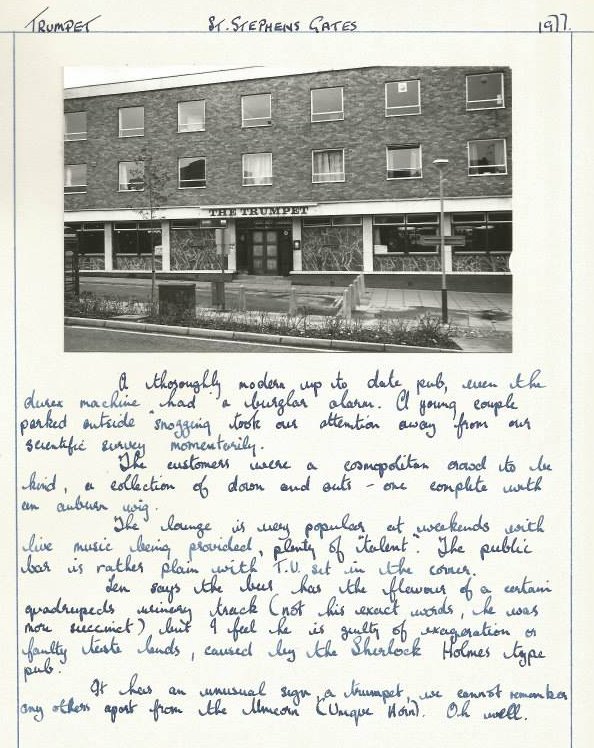 TRUMPET ST. STEPHENS GATES 1977.
THE TRUMPET
A thoroughly modern up to date pub, even the
durex machine had a burglar alarm. A young couple
parked outside "snogging took our attention away from our
scientific survey momentarily.
The customers were a cosmopolitan crowd to be
kind, a collection of down and outs - one complete with
an auburn wig.
The lounge is very popular at weekends with
live music being provided, plenty of "talent". The public
bar is rather plain with T.U. set in the corner.
Len says the beer has the flavour of a certain
quadrupeds urinery track (not his exact words, he was
more succinct) but I feel he is guilty of exageration or
faulty taste buds, caused by the Sherlock Holmes type
pub.
It has an unusual sign, a trumpet, we cannot remember
any others apart from the Unicorn (Unique Horn). Oh well.